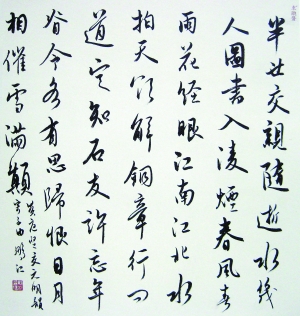 半世交親隨逝水幾
人圖畫入凌煙春風春
雨花經眼江南江北水
拍天欲解銅章行問
道定知石友許忘年
脊令各有思歸恨日月
相催雪滿顛
黃庭堅次元明韻
寄子由